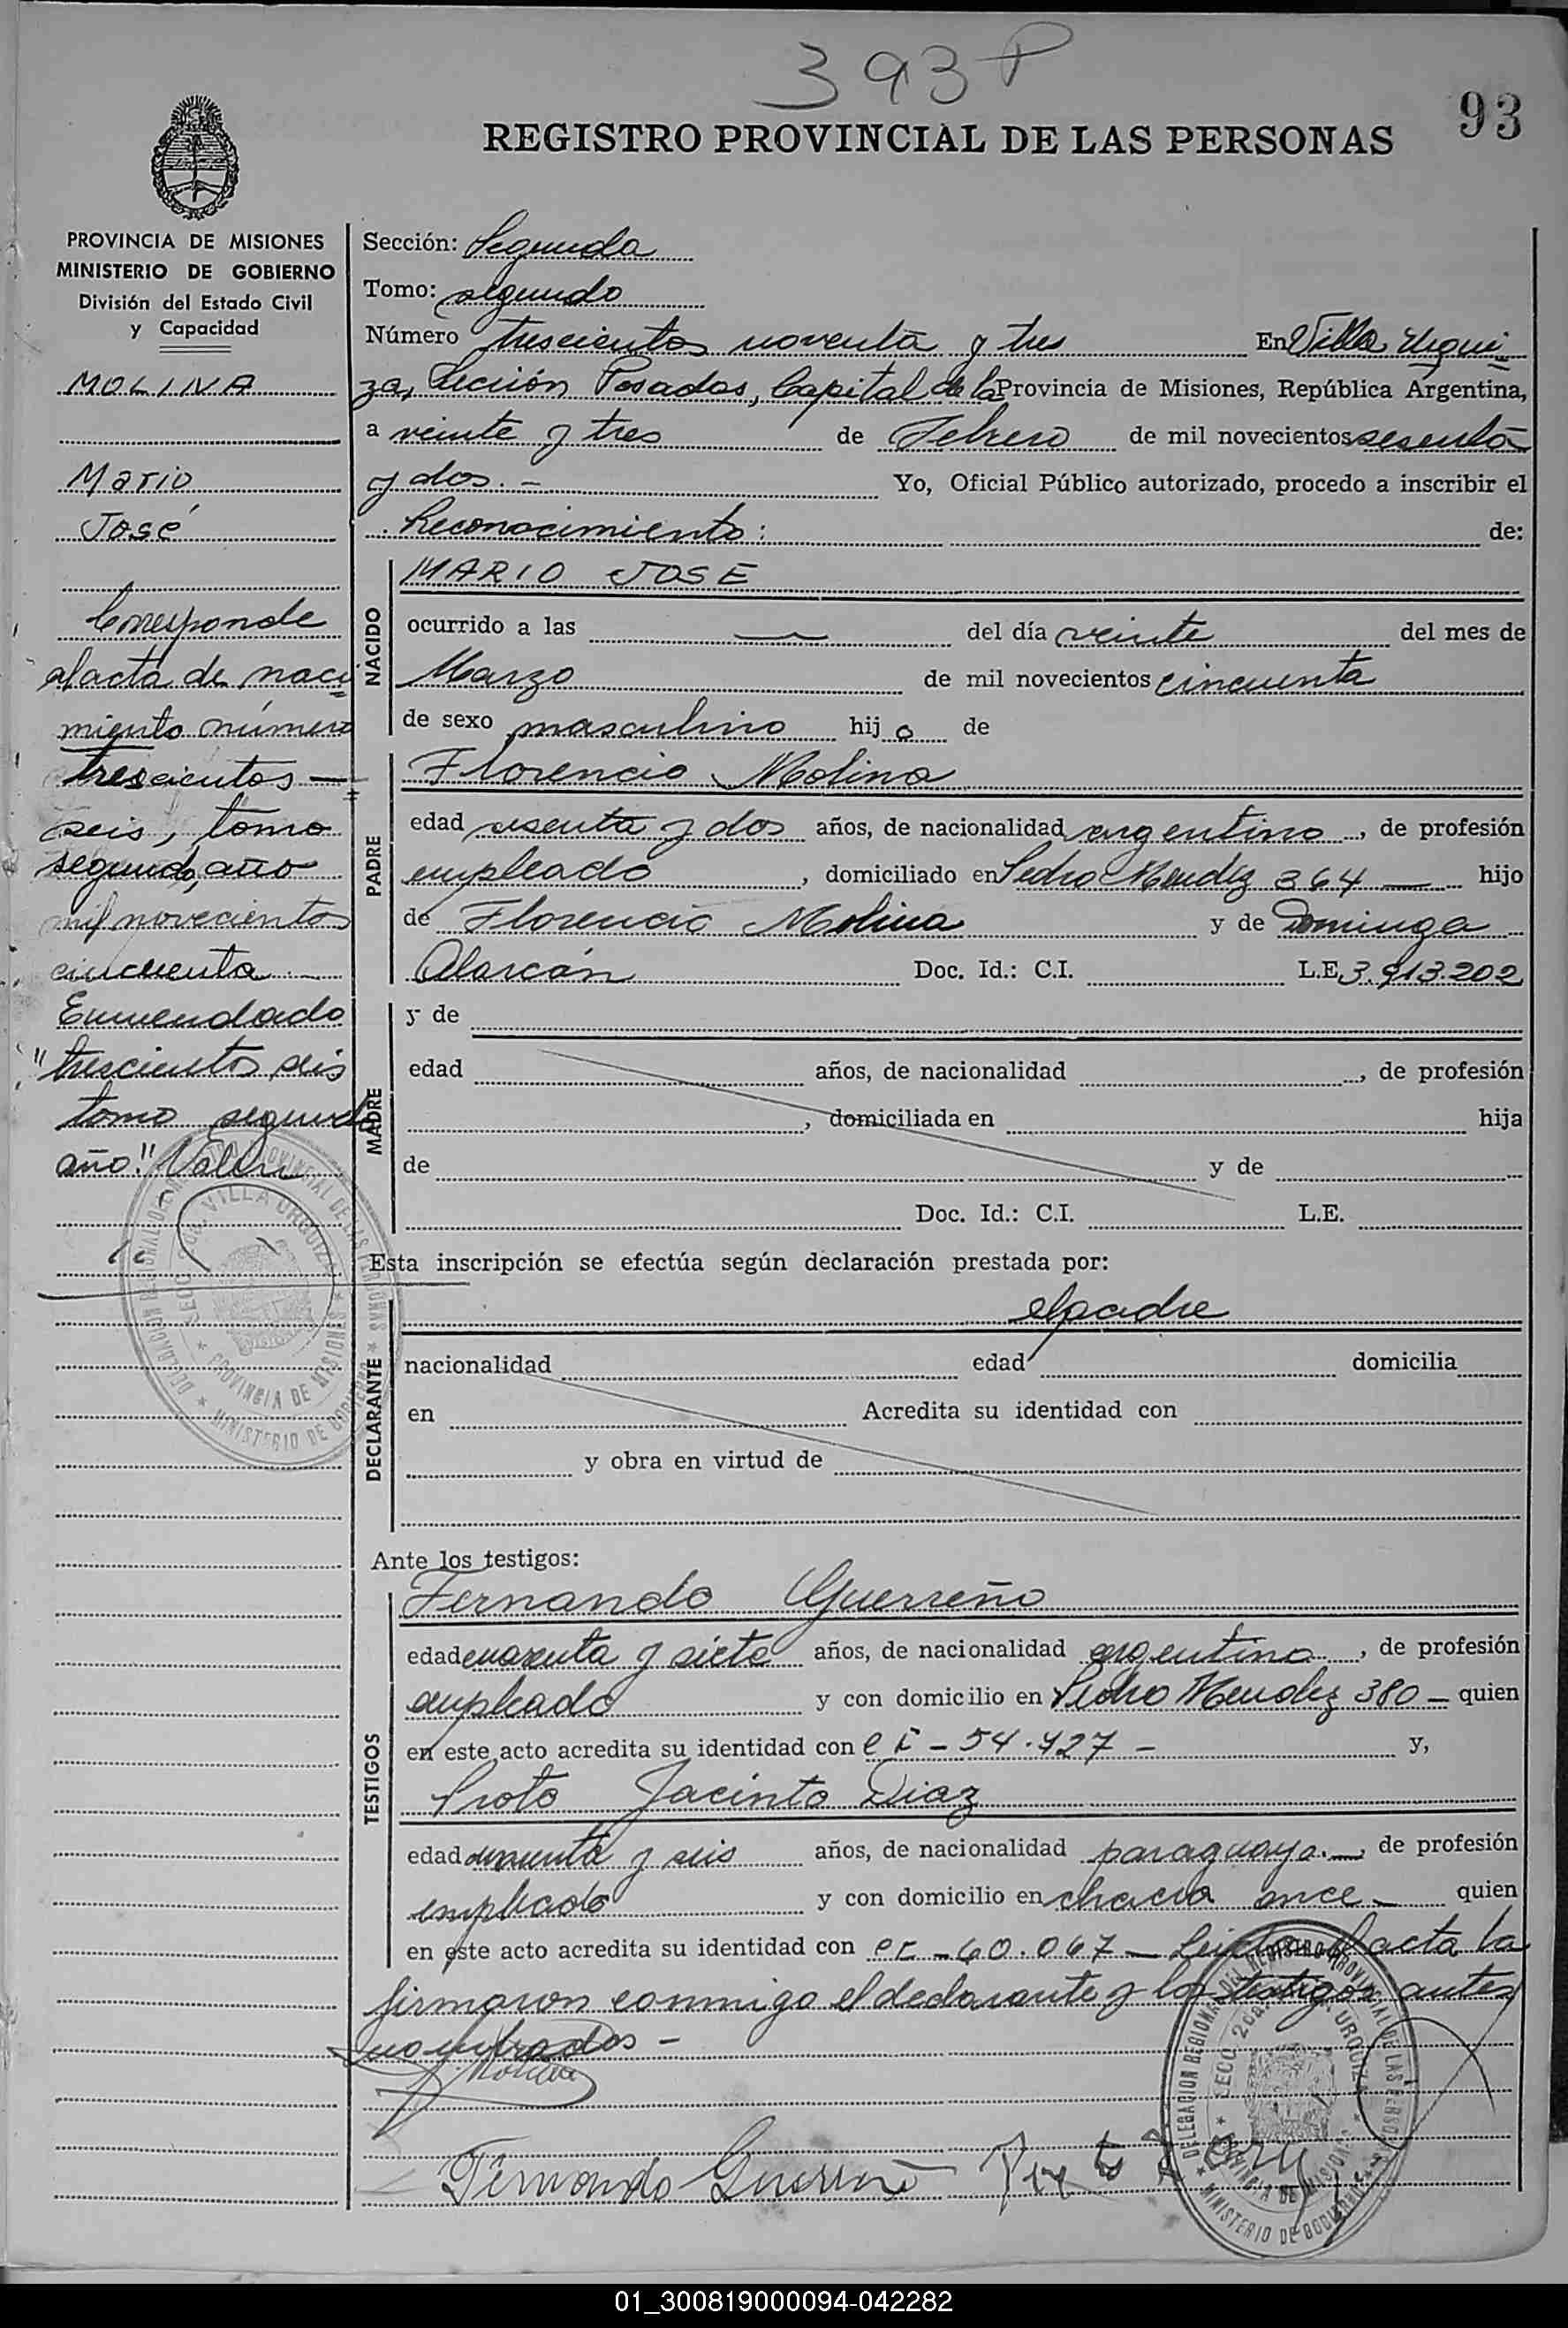 393 P
93
REGISTRO PROVINCIAL DE LAS PERSONAS
PROVINCIA DE MISIONES
MINISTERIO DE GOBIERNO
División del Estado Civil
y Capacidad
MOLINA
Mario
José
Corresponde
al acta de naci
miento número
trescientos —
seis, tomo
segundo, año
mil novecientos
cincuenta . —
Enmendado
"trescientos seis
tomo segundo
año." Valen
Sección: Segunda
Tomo: segundo
Número trescientos noventa y tres En Villa Urqui
za, Sección Posadas, Capital de la Provincia de Misiones, República Argentina,
a veinte y tres de Febrero de mil novecientos sesenta
y dos. - Yo, Oficial Público autorizado, procedo a inscribir el
Reconocimiento: de:
NACIDO
MARIO JOSE
ocurrido a las — del día veinte del mes de
Marzo de mil novecientos cincuenta
de sexo masculino hijo de
PADRE
Florencio Molina
edad sesenta y dos años, de nacionalidad argentino, de profesión
empleado, domiciliado en Pedro Mendez 364 — hijo
de Florencio Molina y de Dominga
Alarcón Doc. Id.: C.I. L.E. 3.913.202
MADRE
y de
edad años, de nacionalidad , de profesión
, domiciliada en hija
de y de
Doc. Id.: C.I. L.E.
Esta inscripción se efectúa según declaración prestada por:
DECLARANTE
el padre
nacionalidad edad domicilia
en Acredita su identidad con
y obra en virtud de
Ante los testigos:
TESTIGOS
Fernando Guerreño
edad cuarenta y siete años, de nacionalidad argentino, de profesión
empleado y con domicilio en Pedro Mendez 380 — quien
en este acto acredita su identidad con C I - 54.427 - y,
Proto Jacinto Diaz
edad y seis años, de nacionalidad paraguaya. —, de profesión
empleado y con domicilio en chacra once — quien
en este acto acredita su identidad con 60.067 — Leida el acta la
firmaron conmigo el declarante y los testigos antes
nombrados -
Molina
Fernando Guerreño
SECC. 2da. VILLA URQUIZA
PROVINCIA DE MISIONES
MINISTERIO DE GOBIERNO
DELEGACION REGIONAL DEL REGISTRO PROVINCIAL DE LAS PERSONAS
SECC. 2da. URQUIZA
PROVINCIA DE MISIONES
MINISTERIO DE GOBIERNO
01_300819000094-042282